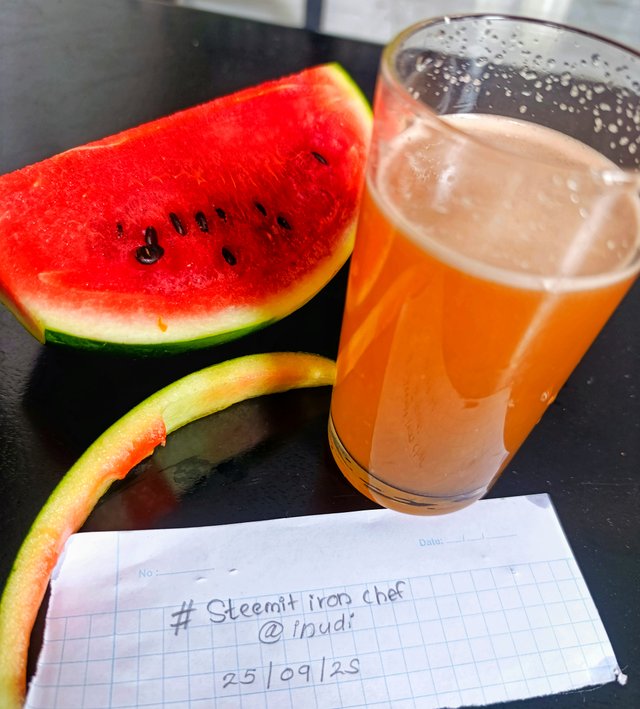 No :
Date: / /
# Steemit iron chef
@ inudi
25/09/25